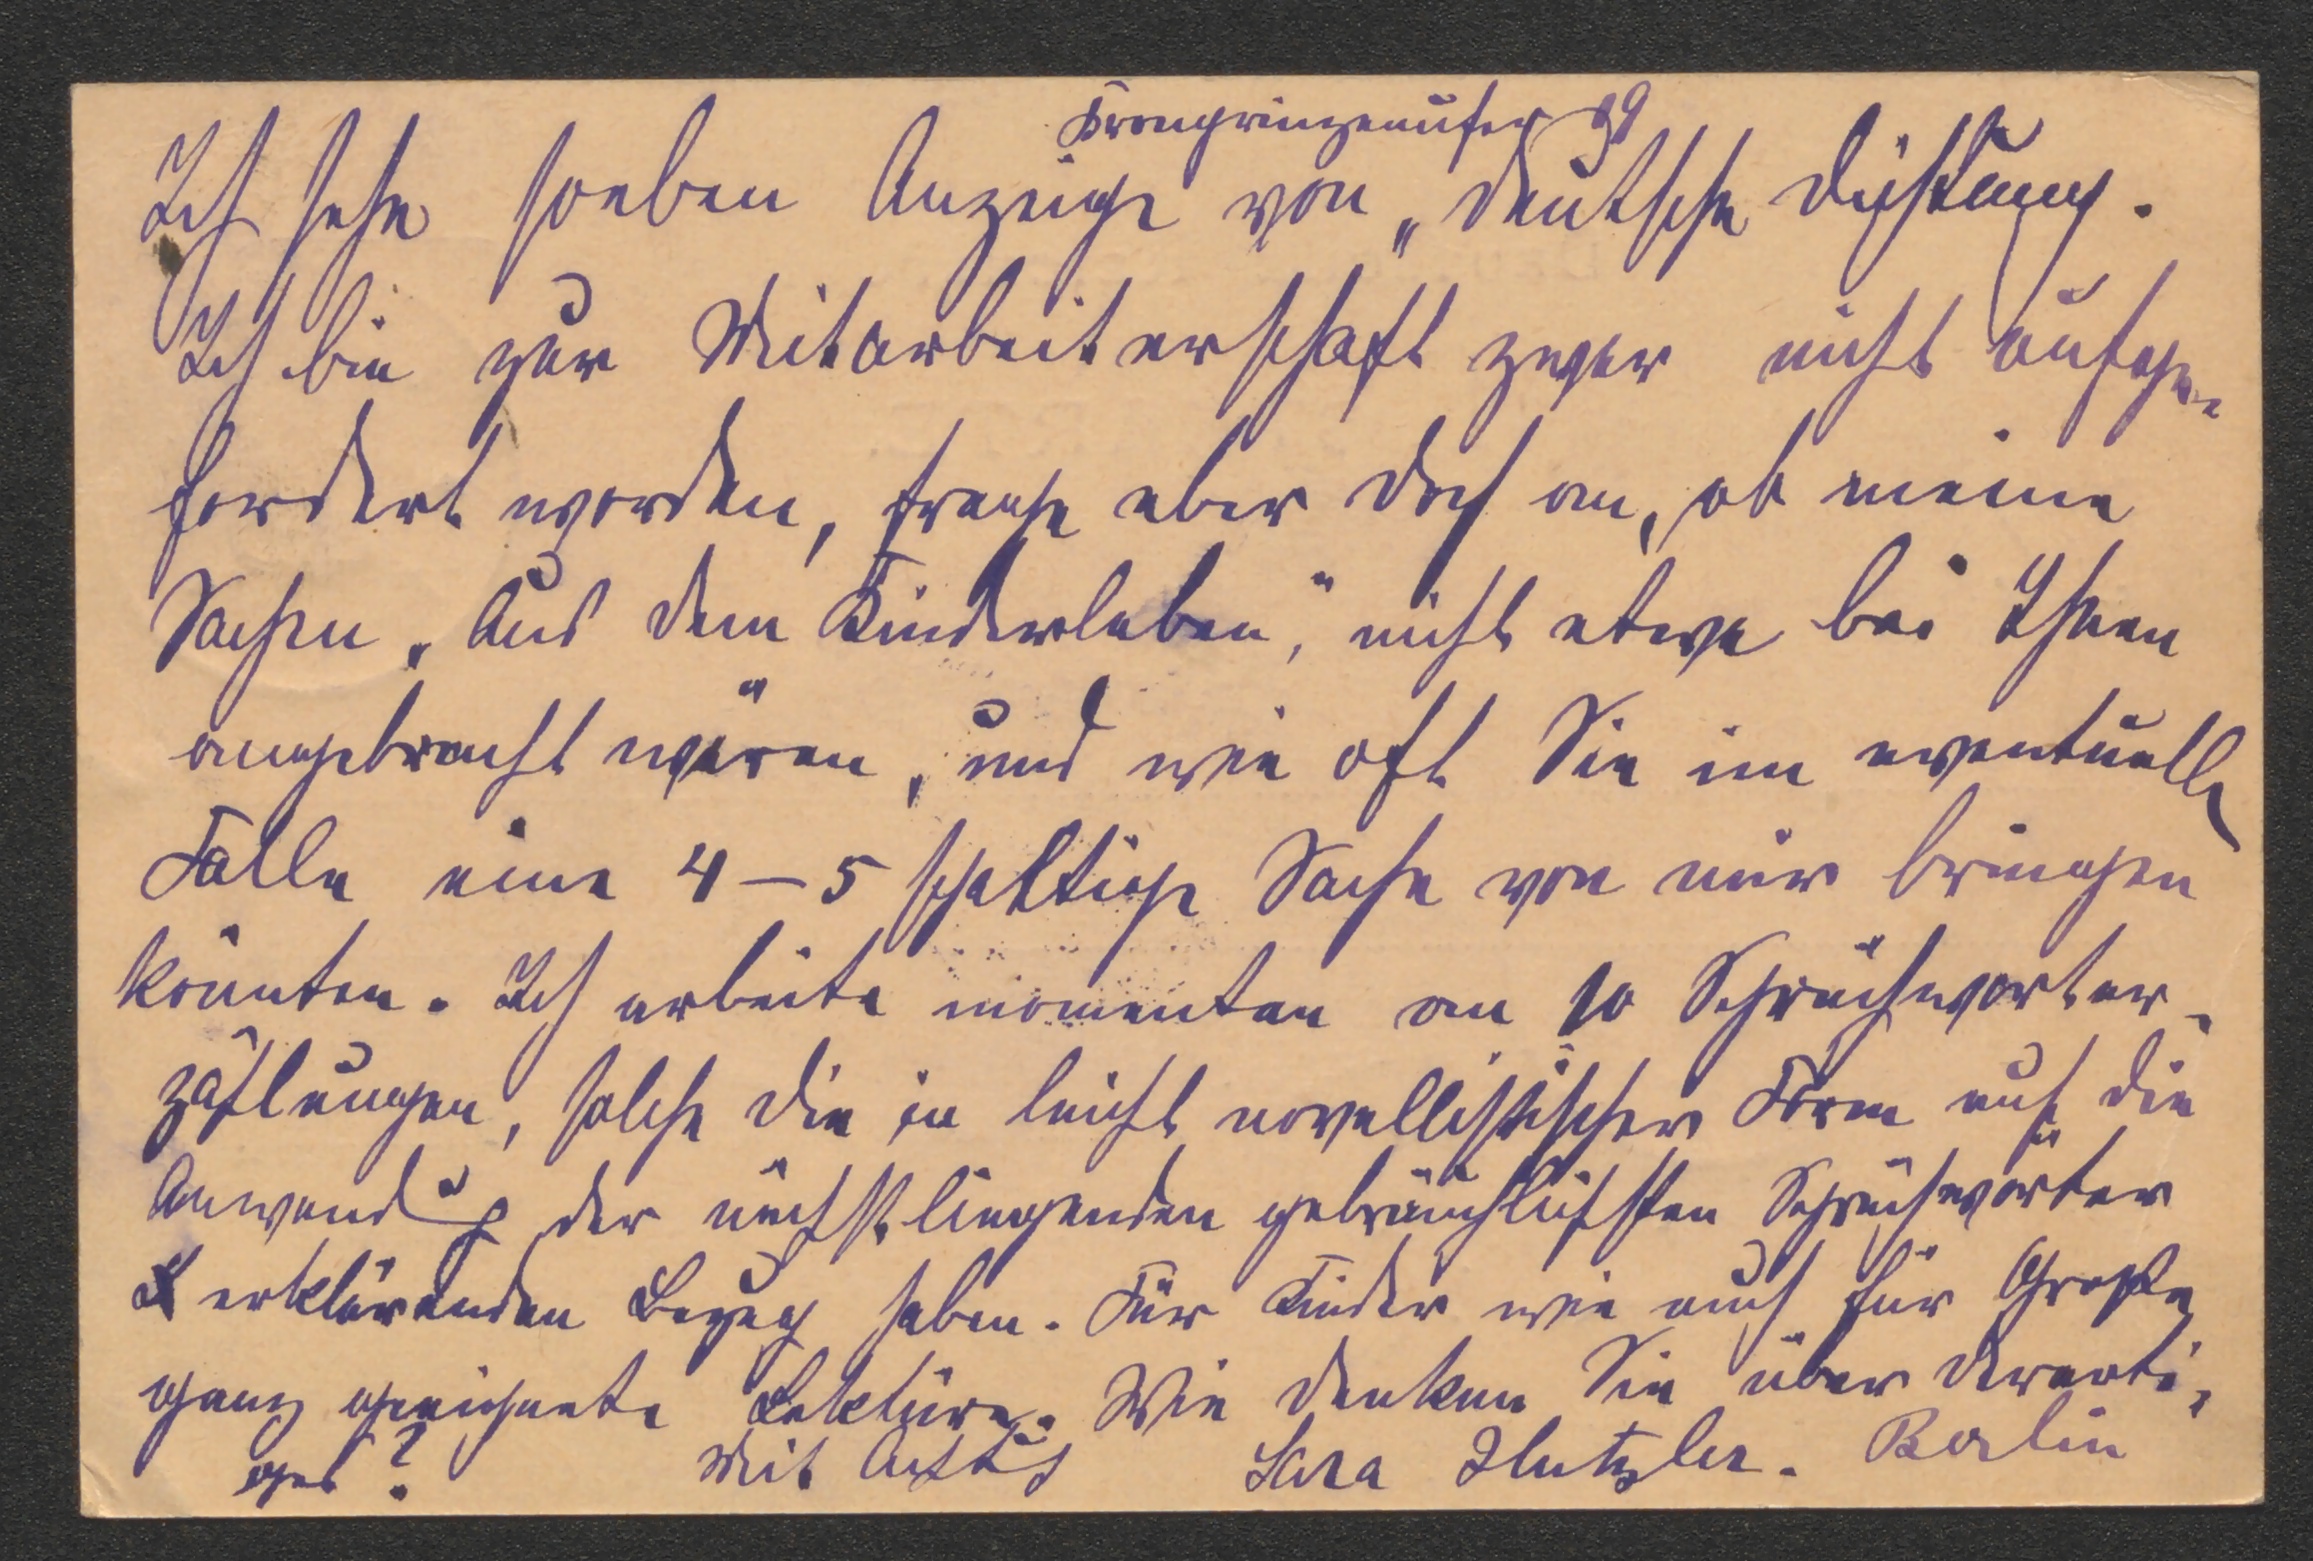 Kronprinzenufer
Ich sehe soeben Anzeige von „Deutsche Dichtung.
Ich bin zur Mitarbeiterschaft zwar nicht aufge-
fordert worden, frage aber doch an, ob meine
Sachen „Aus dem Kinderleben," nicht etwa bei Ihnen
angebracht wären, und wie oft Sie im eventuelle
Falle eine 4–5 spaltige Sache von mir bringen
könnten. Ich arbeite momentan an 10 Sprüchworter-
zählungen, solche die in leicht novellistischer Form auf die
Anwendung der nächstliegenden gebräuchlichsten Sprüchwörter
erklärenden Bezug haben. Für Kinder wie auch für Große
ganz geeignete Lektüre. Wie denken Sie über derarti-
ges? Mit Sara Hutzler. Berlin